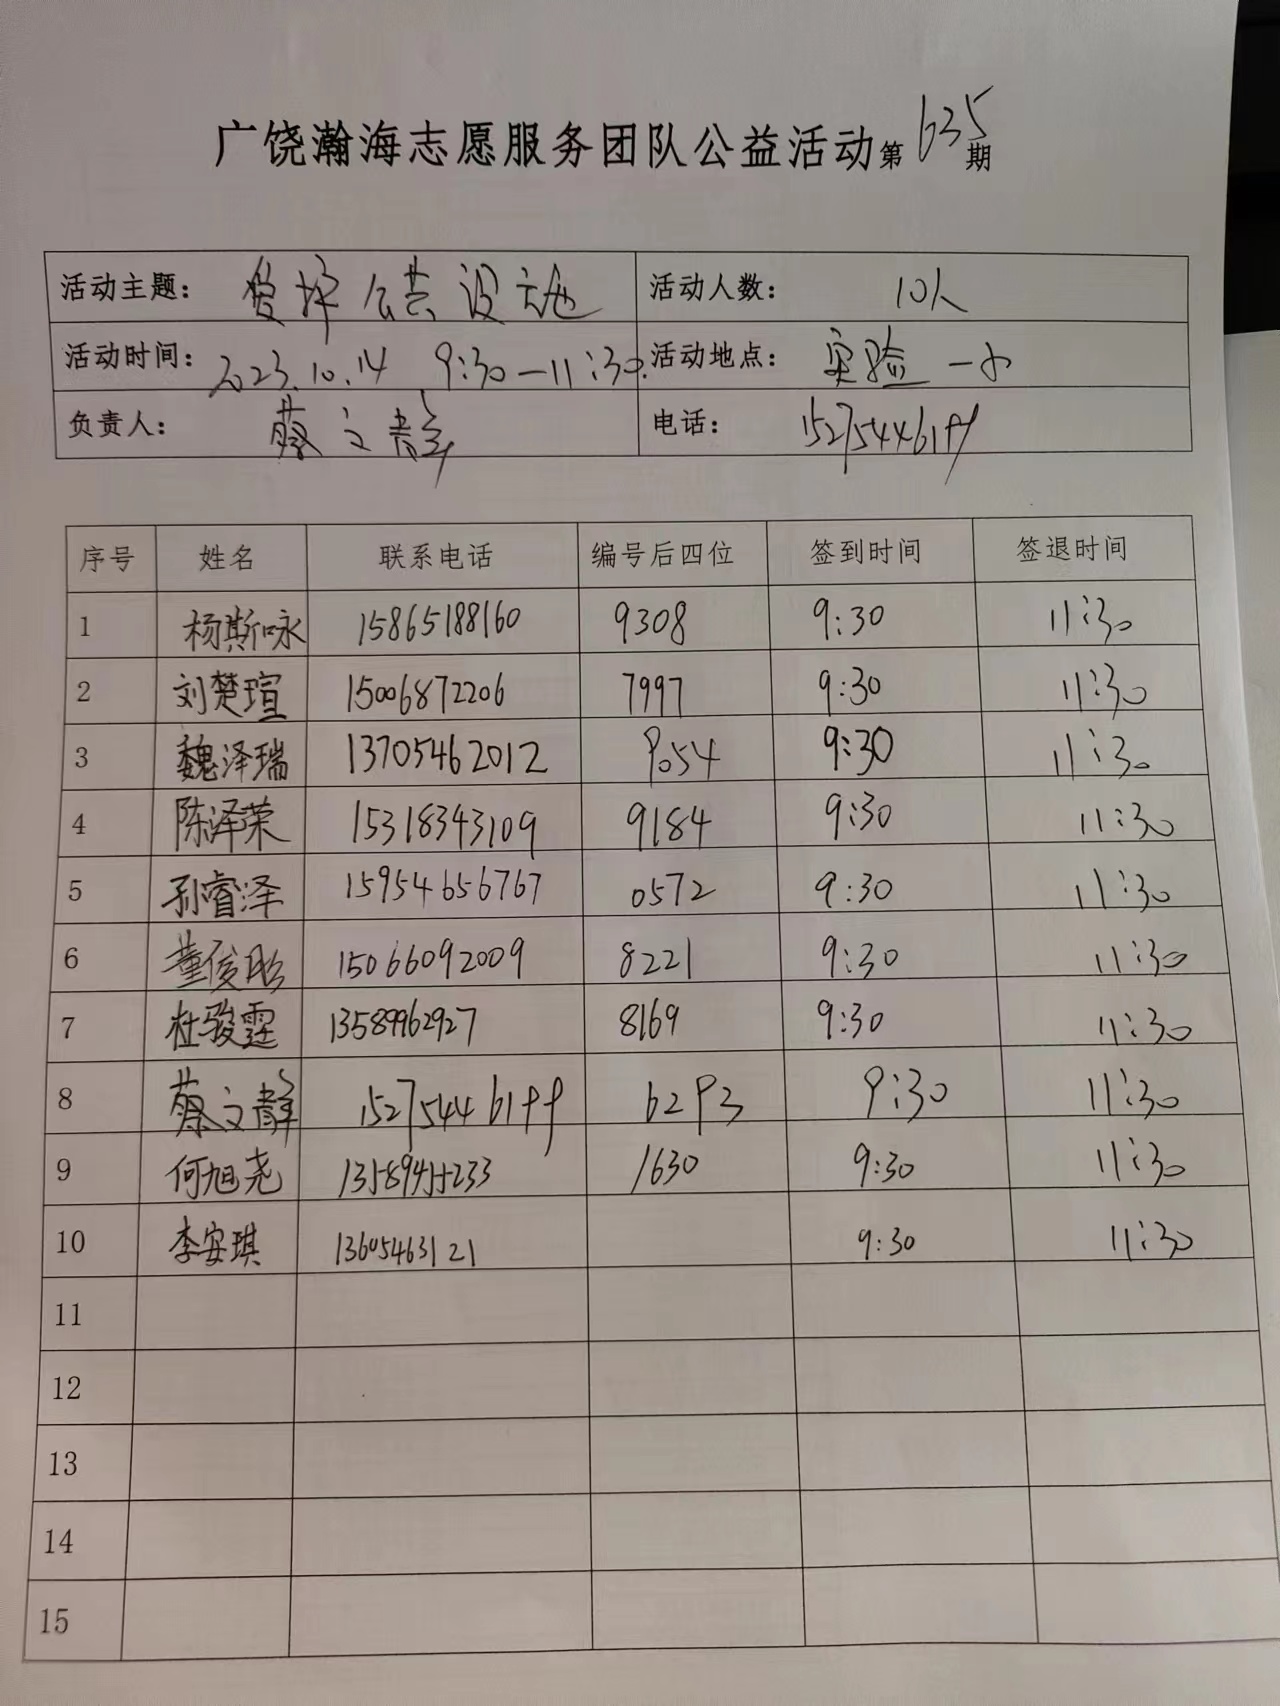 广饶瀚海志愿服务团队公益活动第635期
活动主题： 爱护公共设施 活动人数： 10人
活动时间： 2023.10.14 9:30—11:30. 活动地点： 实验一小
负责人： 蔡文静 电话：
序号 姓名 联系电话 编号后四位 签到时间 签退时间
1 杨斯咏 15865188160 9308 9:30 11:30
2 刘楚瑄 15006872206 7997 9:30 11:30
3 魏泽瑞 13705462012 9054 9:30 11:30
4 陈泽荣 15318343109 9184 9:30 11:30
5 孙睿泽 15954656767 0572 9:30 11:30
6 董俊彤 15066092009 8221 9:30 11:30
7 杜骏霆 13589962927 8169 9:30 11:30
8 蔡文静 6293 9:30 11:30
9 何旭尧 1630 9:30 11:30
10 李安琪 13605463121 9:30 11:30
11
12
13
14
15